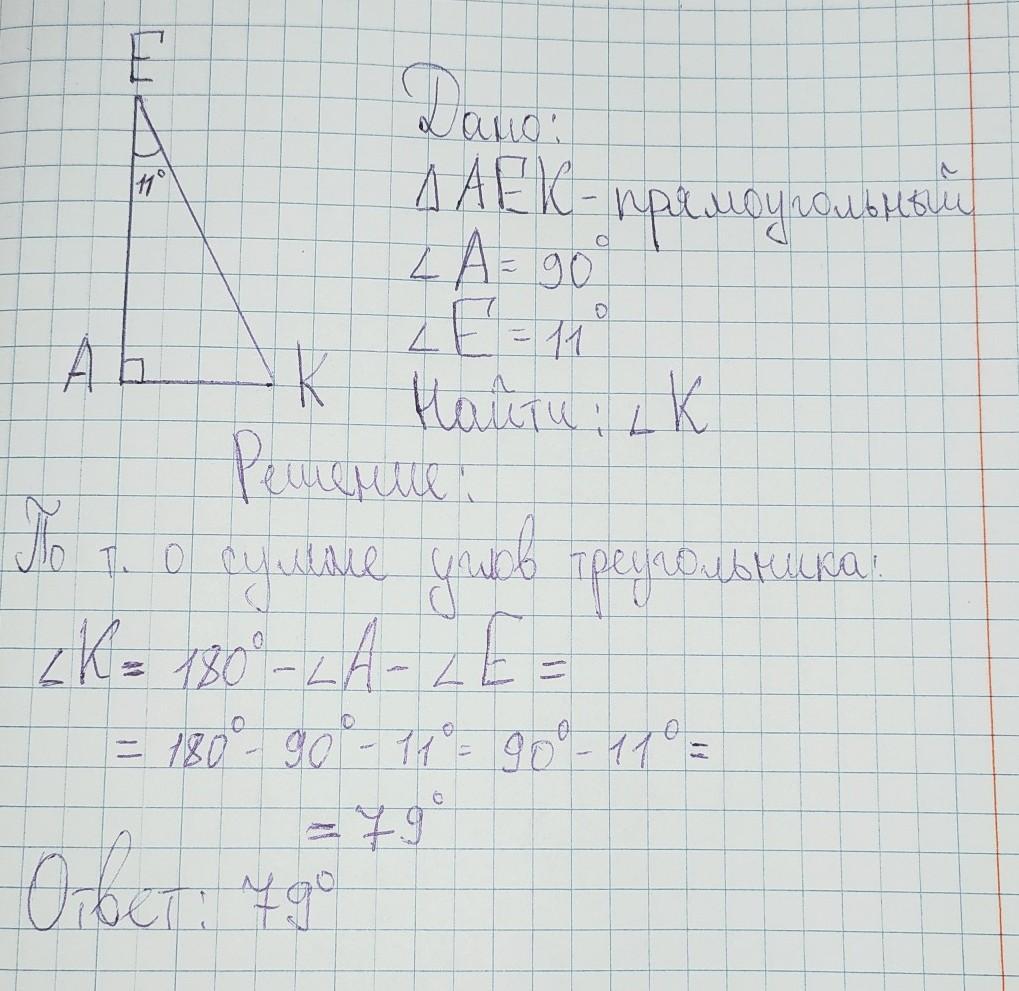 E
11°
A
K
Дано:
ΔAEK - прямоугольный
∠A = 90°
∠E = 11°
Найти: ∠K
Решение:
По т. о сумме углов треугольника:
∠K = 180° - ∠A - ∠E =
= 180° - 90° - 11° = 90° - 11° =
= 79°
Ответ: 79°